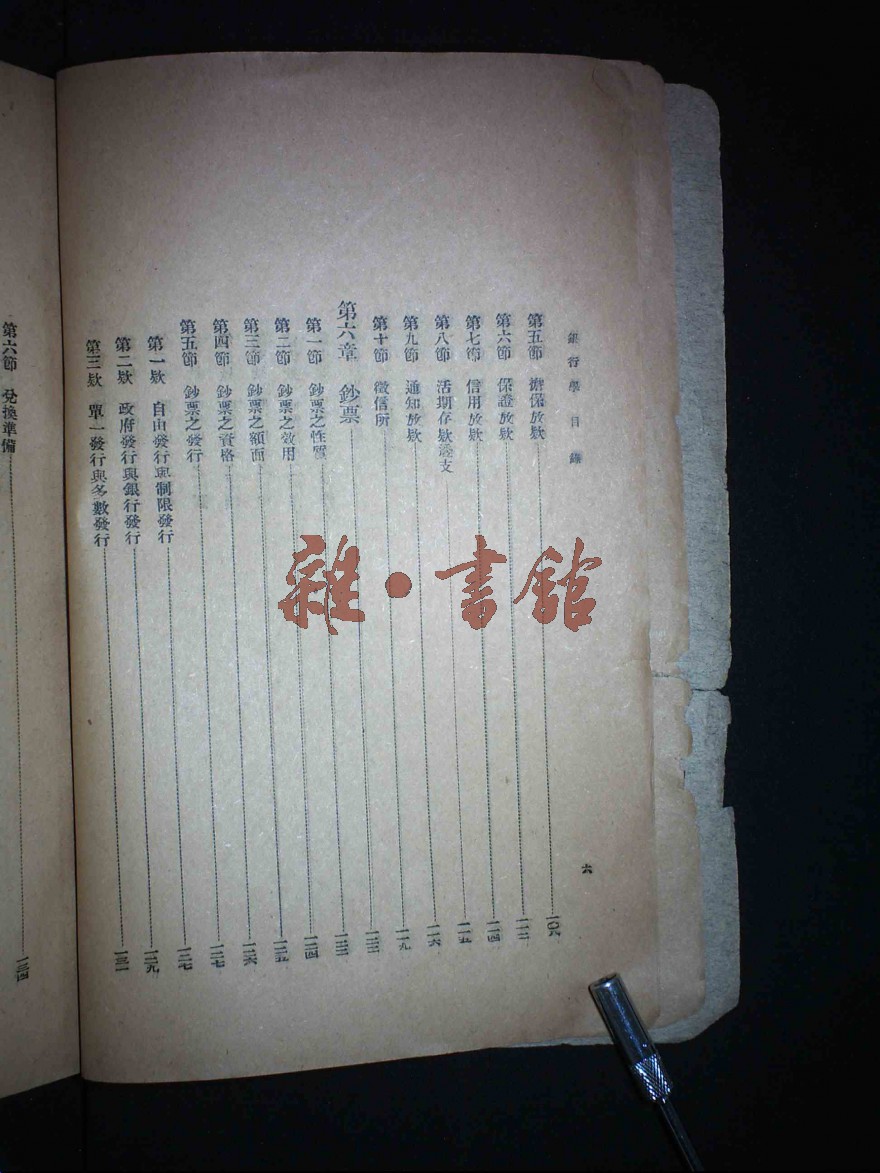 銀行學目錄
六
第五節 擔保放欵 一〇六
第六節 保證放欵 一一三
第七節 信用放欵 一一四
第八節 活期存欵透支 一一五
第九節 通知放欵 一一六
第十節 徵信所 一一九
第六章 鈔票
第一節 鈔票之性質
第二節 鈔票之效用 一二四
第三節 鈔票之額面 一二五
第四節 鈔票之資格 一二六
第五節 鈔票之發行 一二七
第一欵 自由發行與制限發行 一二七
第二欵 政府發行與銀行發行 一二九
第三欵 單一發行與多數發行 一三一
第六節 兌換準備 一三四
雜·書館